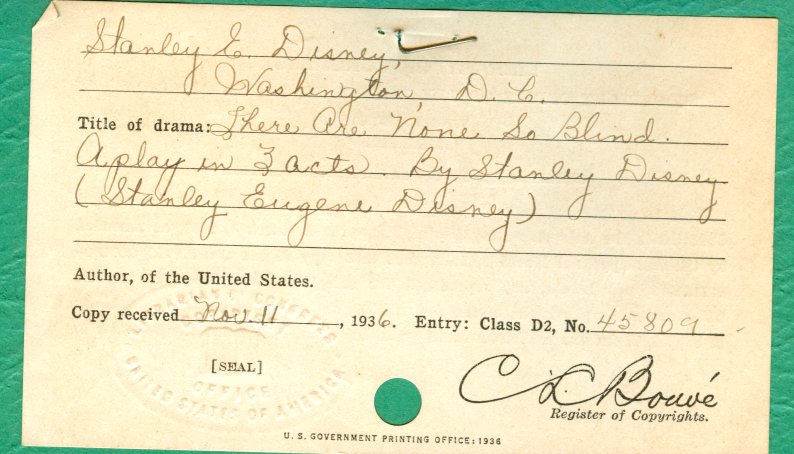 Stanley E. Disney,
Washington, D. C.
Title of drama: There Are None So Blind.
A play in 3 acts. By Stanley Disney
(Stanley Eugene Disney)
Author, of the United States.
Copy received Nov. 11, 1936. Entry: Class D2, No. 45809
LIBRARY OF CONGRESS
COPYRIGHT
[SEAL]
OFFICE
UNITED STATES OF AMERICA
C L Bouvé
Register of Copyrights.
U. S. GOVERNMENT PRINTING OFFICE: 1936